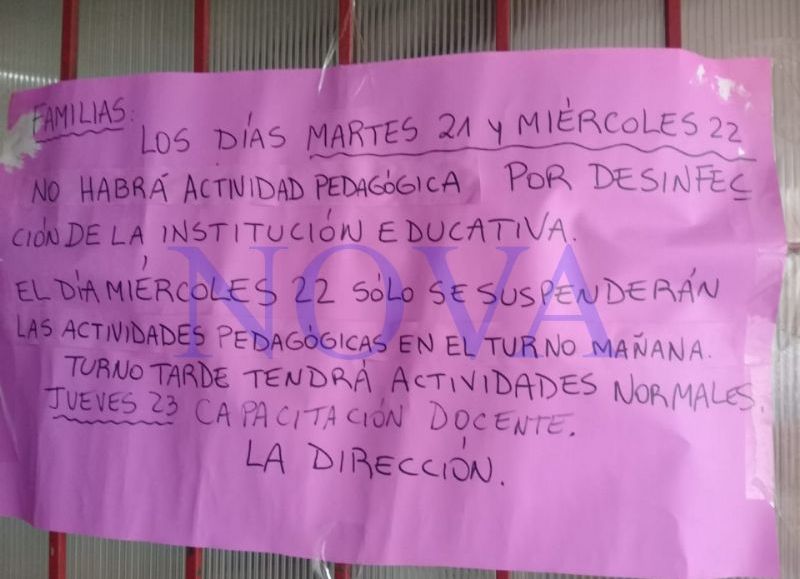 FAMILIAS:
LOS DÍAS MARTES 21 Y MIÉRCOLES 22
NO HABRÁ ACTIVIDAD PEDAGÓGICA POR DESINFEC
CIÓN DE LA INSTITUCIÓN EDUCATIVA.
EL DÍA MIÉRCOLES 22 SÓLO SE SUSPENDERÁN
LAS ACTIVIDADES PEDAGÓGICAS EN EL TURNO MAÑANA.
TURNO TARDE TENDRÁ ACTIVIDADES NORMALES.
JUEVES 23 CAPACITACIÓN DOCENTE.
LA DIRECCIÓN.
NOVA